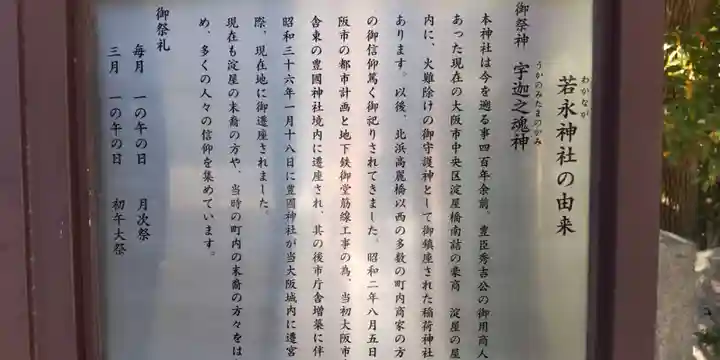 若永神社の由来
わかなが
御祭神 宇迦之魂神
うかのみたまのかみ
本神社は今を遡る事四百年余前。豊臣秀吉公の御用商人
あった現在の大阪市中央区淀屋橋南詰の豪商 淀屋の屋
内に、火難除けの御守護神として御鎮座された稲荷神社
あります。以後、北浜高麗橋以西の多数の町内商家の方
の御信仰篤く御祀りされてきました。昭和二年八月五日
阪市の都市計画と地下鉄御堂筋線工事の為、当初大阪市
舎東の豊國神社境内に遷座され、其の後市庁舎増築に伴
昭和三十六年一月十八日に豊國神社が当大阪城内に遷宮
際、現在地に御遷座されました。
現在も淀屋の末裔の方や、当時の町内の末裔の方々をは
め、多くの人々の信仰を集めています。
御祭礼
毎月 一の午の日 月次祭
三月 一の午の日 初午大祭